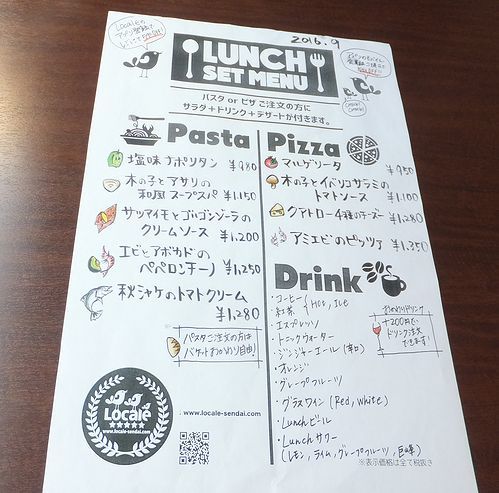 Localeの
アプリ登録で
2016.9
LUNCH
SET MENU
パスタ or ピザ ご注文の方に
サラダ+ドリンク+デザートが付きます。
Pasta
塩味ナポリタン ¥980
木の子とアサリの
和風スープスパ ¥1,150
サツマイモとゴルゴンゾーラの
クリームソース ¥1,200
エビとアボカドの
ペペロンチーノ ¥1,250
秋シャケのトマトクリーム
¥1,280
パスタご注文の方は
バゲットおかわり自由!
Pizza
マルゲリータ ¥950
木の子とイベリコサラミの
トマトソース ¥1,100
クアトロ-4種のチーズ- ¥1,280
アミエビのピッツァ ¥1,350
Drink
・コーヒー
・紅茶
Hot, Ice
・エスプレッソ
・トニックウォーター
・ジンジャーエール(辛口)
・オレンジ
・グレープフルーツ
・グラスワイン(Red, White)
・Lunchビール
・Lunchサワー
(レモン, ライム, グレープフルーツ, 巨峰)
おかわりドリンク
+200円で
ドリンク注文
できます!
※表示価格は全て税抜き
Locale
www.locale-sendai.com
: www.locale-sendai.com